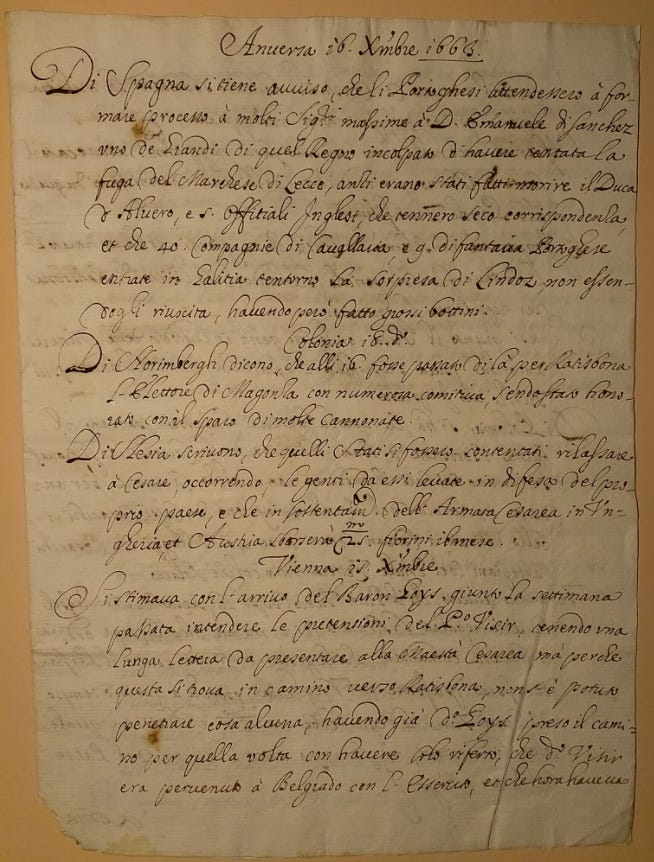 Anversa 16. Xmbre 1663.
Di Spagna si tiene avviso, che li Portoghesi attendessero à for-
mare processo à molti Sigri massime à D. Emanuele di Sanchez
uno de Grandi di quel Regno incolpato d'havere tentata la
fuga del Marchese di Lecce, anzi erano stati fatti morire il Duca
d'Alvero, e 5. Offitiali Inglesi, che tennero seco corrispondenza,
et che 40. Compagnie di Cavallaria, e 9. di fantaria Portoghese
entrate in Galitia tentorno la sorpresa di Lindoz, non essen-
dogli riuscita, havendo però fatto grossi bottini.
Colonia 18. do
Di Norimbergh dicono, che alli 16 fosse passato di là per Ratisbona
l'Elettore di Magonza con numerosa comitiva, sendo stato hono-
rato con il sparo di molte cannonate.
Di Slesia scrivono, che quelli Stati si fossero contentati rilassare
à Cesare, occorrendo le genti da essi levate in difesa del pro-
prio paese, e che in sostentam.to dell' Armata Cesarea in Vn-
gheria, et Austria sborserà fiorini il mese.
Vienna 15. Xmbre
Si stimava con l'arrivo del Baron Goys, giunto la settimana
passata intendere le pretensioni del Po Visir, tenendo una
lunga lettera da presentare alla Maestà Cesarea, mà perche
questa si trova in camino verso Ratisbona, non s'è potuto
penetrare cosa alcuna, havendo già do Goys preso il cami-
no per quella volta con havere solo riferto, che do Visir
era pervenuto à Belgrado con l'Essercito, et che hora haveva